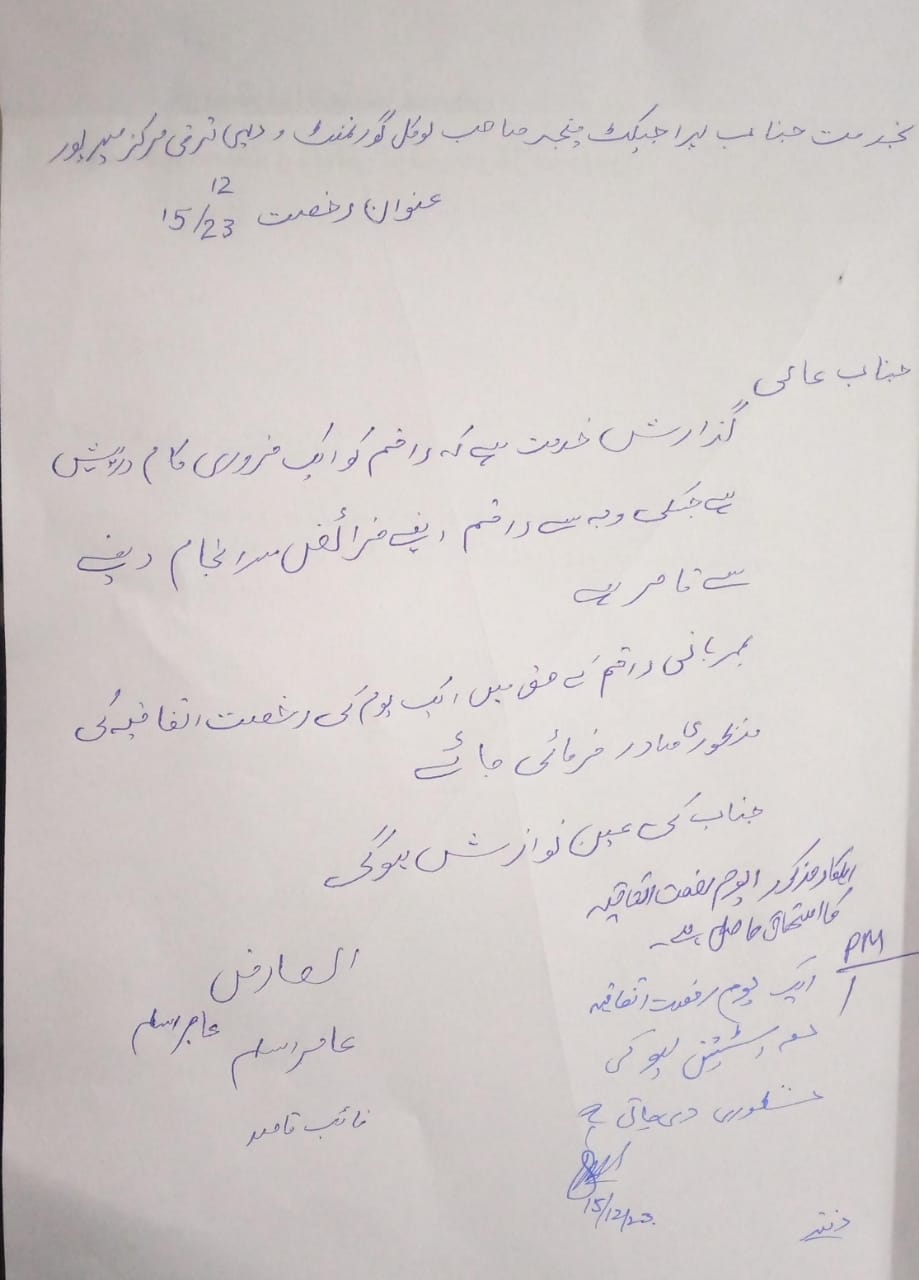 بخدمت جناب پراجیکٹ منیجر صاحب لوکل گورنمنٹ و دیہی ترقی مرکز میرپور
عنوان رخصت 15/12/23
جناب عالی
گذارش خدمت ہے کہ راقم کو ایک ضروری کام درپیش
ہے جسکی وجہ سے راقم اپنے فرائض سرانجام دینے
سے قاصر ہے
بمہربانی راقم کے حق میں ایک یوم کی رخصت اتفاقیہ کی
منظوری صادر فرمائی جائے
جناب کی عین نوازش ہوگی
العارض
عامر اسلم
عامر اسلم
نائب قاصد
اہلکار مذکور الیوم رخصت اتفاقیہ
کا استحقاق حاصل ہے۔
PM
ایک یوم رخصت اتفاقیہ
معہ اسٹیشن لیو کی
منظوری دی جاتی ہے
15/12/23